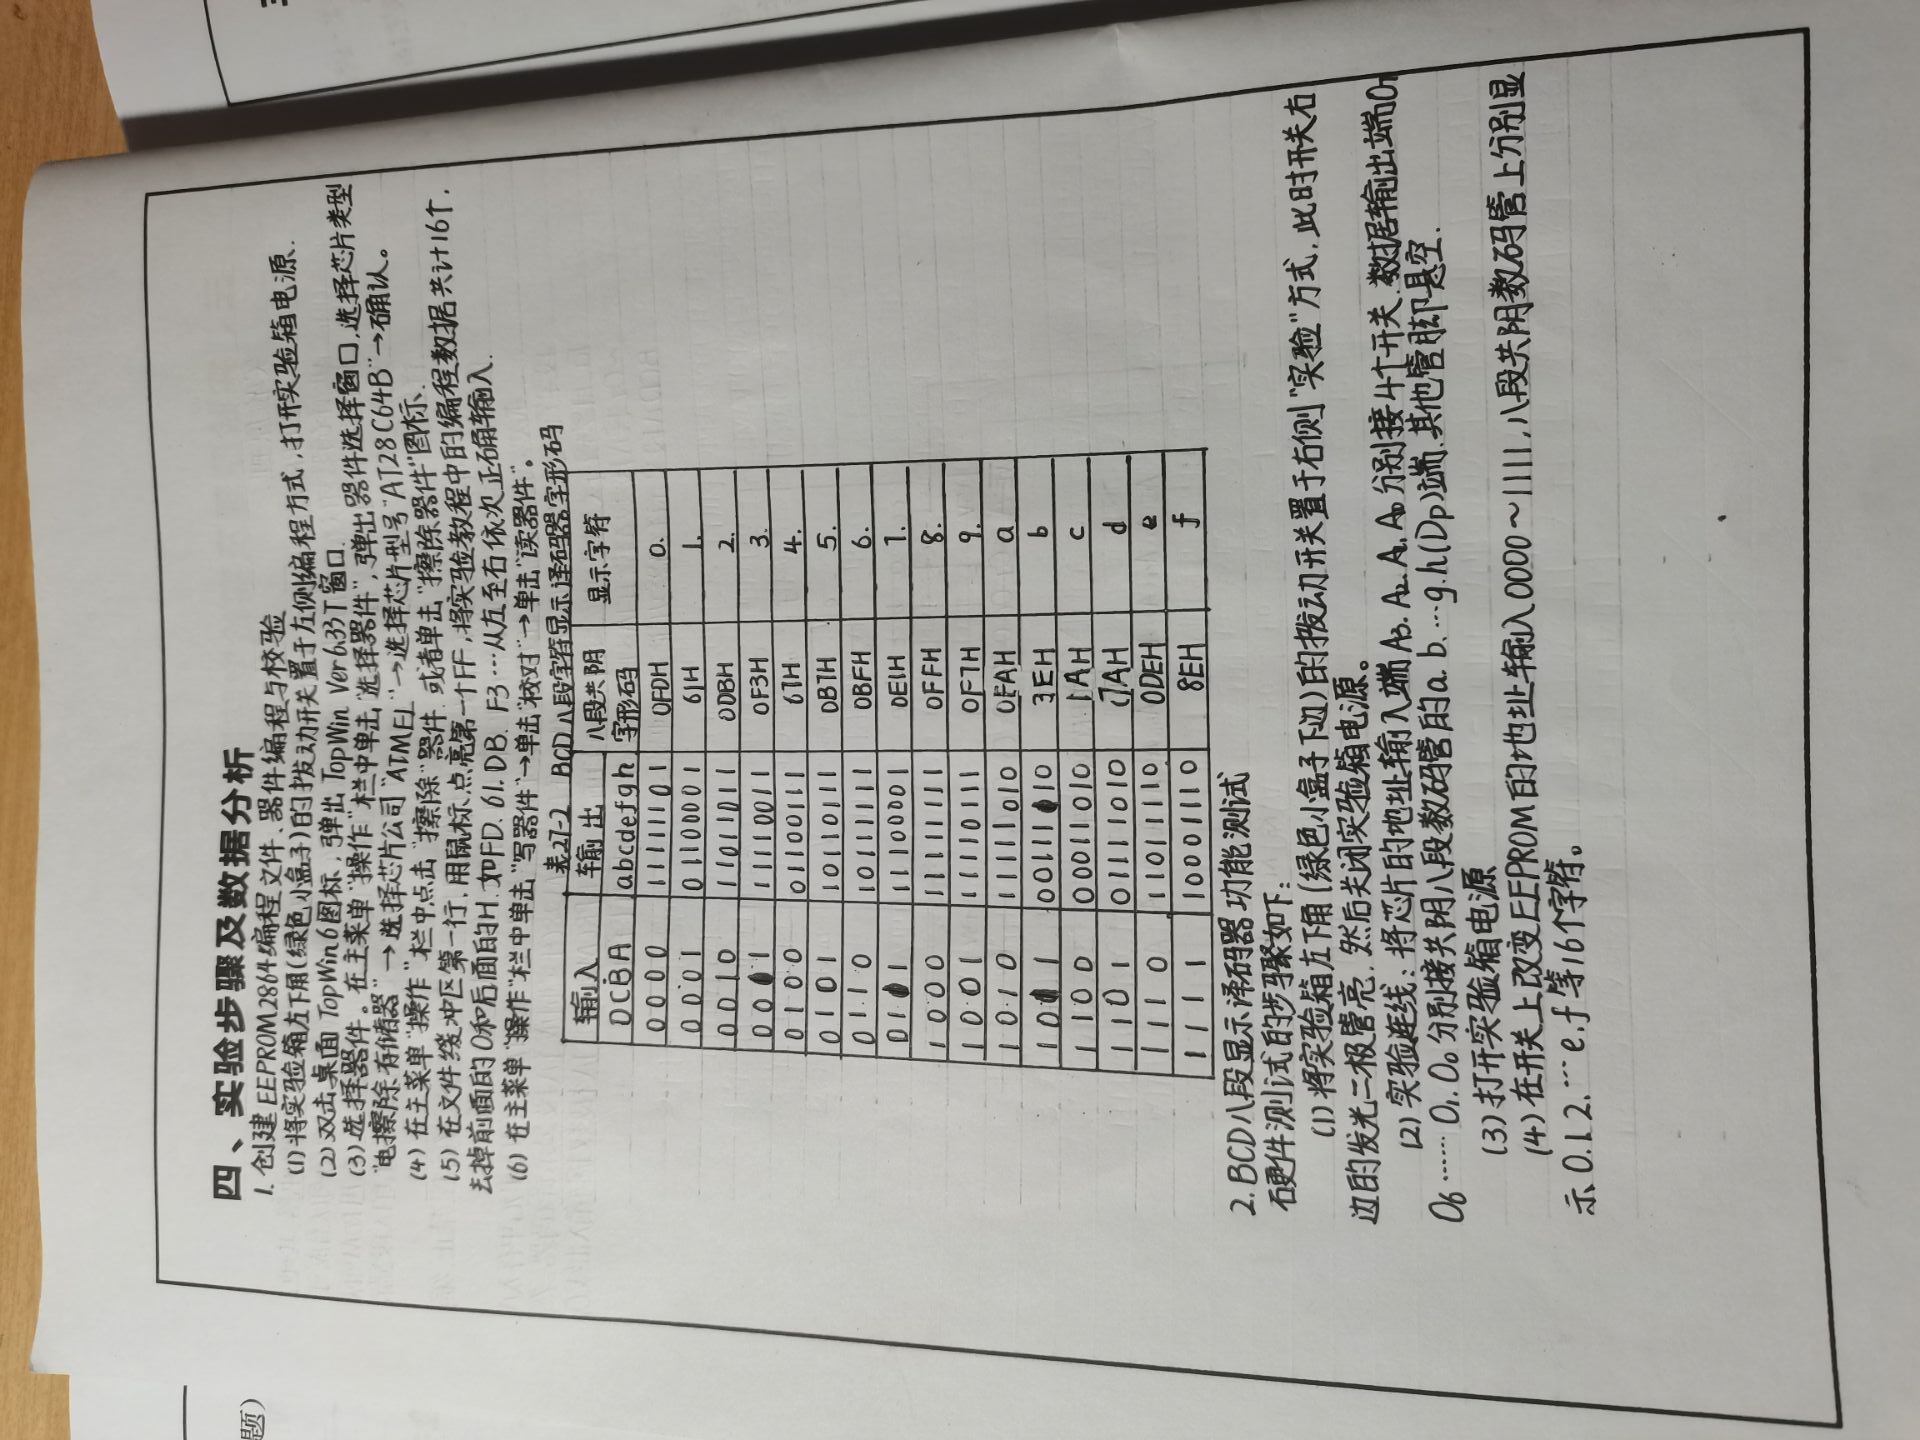 题)
四、实验步骤及数据分析
1. 创建EEPROM2864编程文件、器件编程与校验
(1)将实验箱左下角(绿色小盒子)的拨动开关置于左侧编程方式,打开实验箱电源.
(2)双击桌面TopWin6图标,弹出TopWin Ver6.33T窗口.
(3)选择器件。在主菜单"操作"栏中单击"选择器件",弹出器件选择窗口,选择芯片类型
"电擦除存储器"→选择芯片公司"ATMEL"→选择芯片型号"AT28C64B"→确认。
(4)在主菜单"操作"栏中点击"擦除"器件.或者单击"擦除器件"图标.
(5)在文件缓冲区第一行,用鼠标点亮第一个FF,将实验教程中的编程数据共计16个,
去掉前面的0和后面的H.如FD.61.DB.F3…从左至右依次正确输入.
(6)在主菜单"操作"栏中单击"写器件"→单击"校对"→单击"读器件"。
表27-2 BCD八段字符显示译码器字形码
输入 输出 八段共阴 显示字符
DCBA abcdefgh 字形码
0000 11111101 0FDH 0.
0001 01100001 61H 1.
0010 11011011 0DBH 2.
0011 11110011 0F3H 3.
0100 01100111 67H 4.
0101 10110111 0B7H 5.
0110 10111111 0BFH 6.
0111 11100001 0E1H 7.
1000 11111111 0FFH 8.
1001 11110111 0F7H 9.
1010 11111010 0FAH a
1011 00111110 3EH b
1100 00011010 1AH c
1101 01111010 7AH d
1110 11011110 0DEH e
1111 10001110 8EH f
2.BCD八段显示译码器功能测试
硬件测试的步骤如下:
(1)将实验箱左下角(绿色小盒子下边)的拨动开关置于右侧"实验"方式.此时开关右
边的发光二极管亮.然后关闭实验箱电源。
(2)实验连线:将芯片的地址输入端A3.A2.A1.A0分别接4个开关.数据输出端O7
O6……O1.O0分别接共阴八段数码管的a.b.…g.h(Dp)端.其他管脚悬空.
(3)打开实验箱电源
(4)在开关上改变EEPROM的地址输入0000~1111,八段共阴数码管上分别显
示0.1.2.…e.f等16个字符。